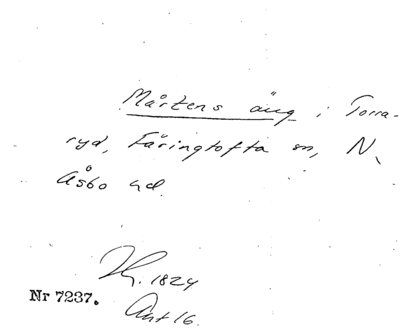 Mårtens äng i Torra-
ryd, Färingtofta sn, N.
Åsbo hd.
1824
Nr 7237.
Akt 16.